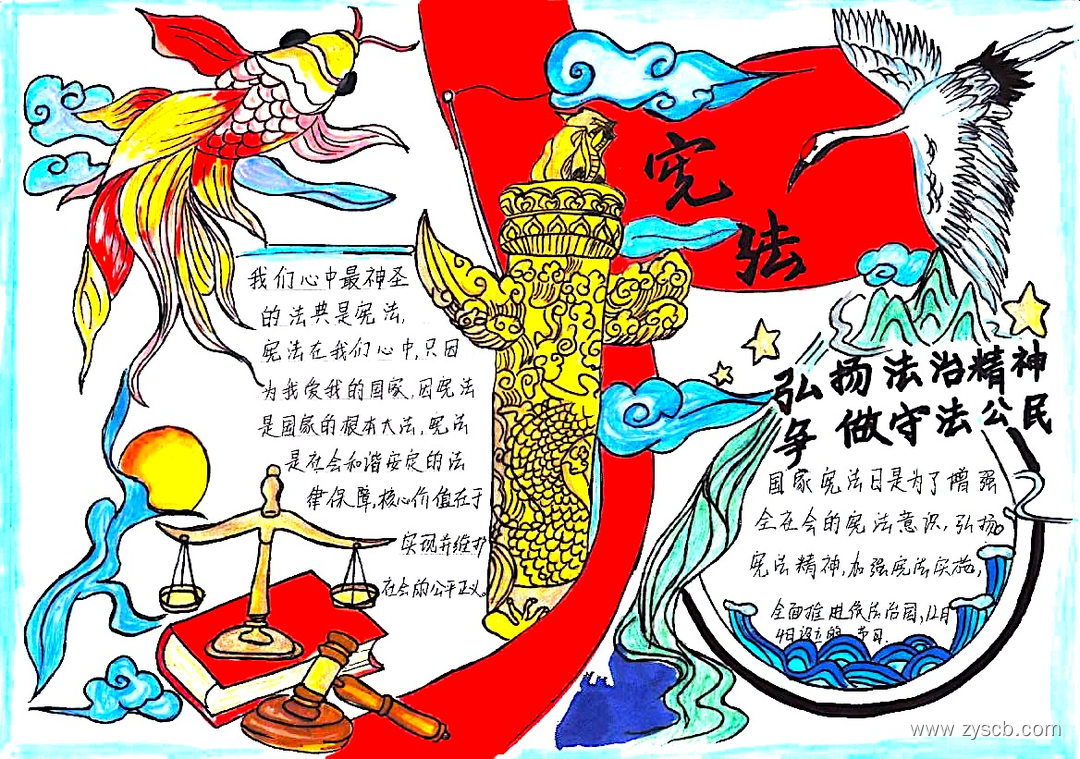 宪法
我们心中最神圣
的法典是宪法,
宪法在我们心中,只因
为我爱我的国家,因宪法
是国家的根本大法,宪法
是社会和谐安定的法
律保障,核心价值在于
实现并维护
社会的公平正义。
弘扬法治精神
争做守法公民
国家宪法日是为了增强
全社会的宪法意识,弘扬
宪法精神,加强宪法实施,
全面推进依法治国,12月
4日设立的节日.
www.zyscb.com